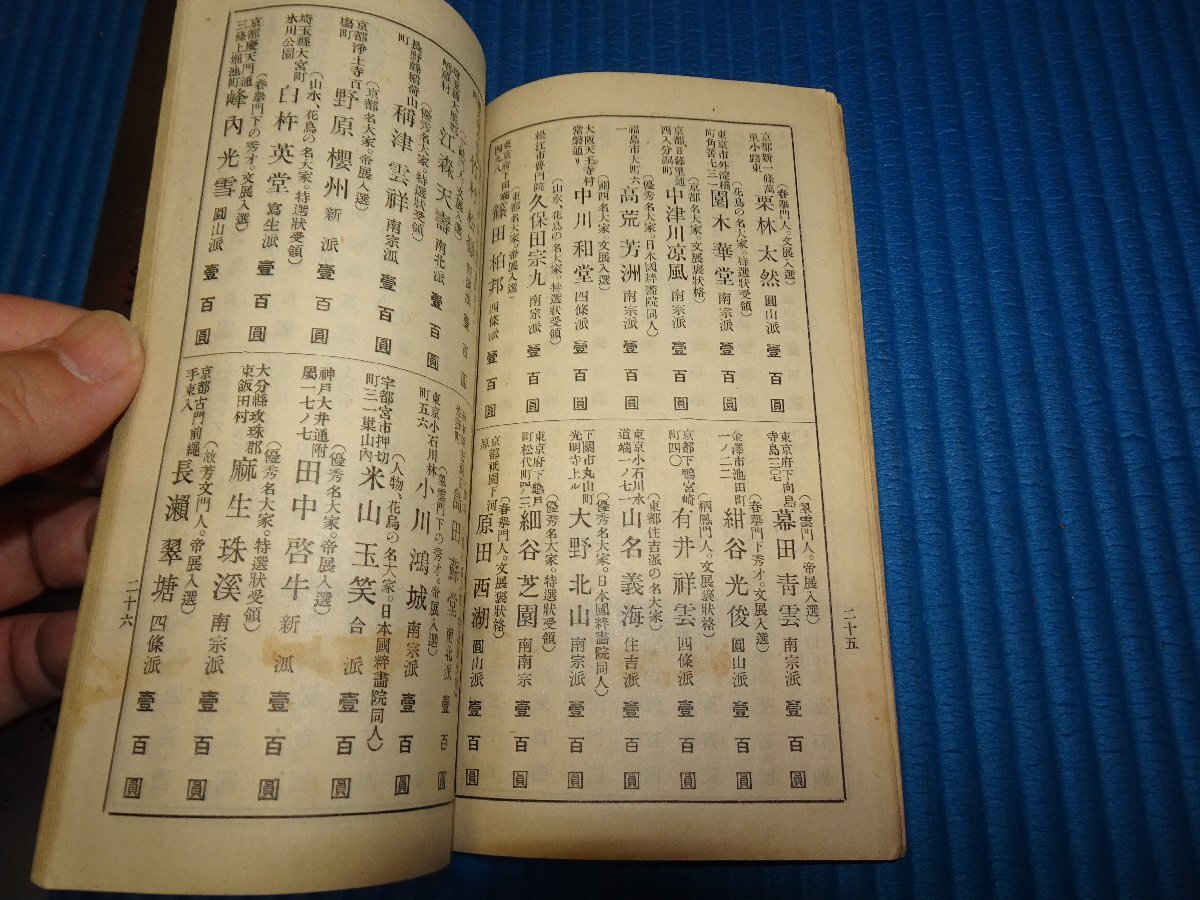 京都新一條萬
里小路東
(春擧門人。文展入選)
栗林太然 圓山派 壹百圓
東京市外淀橋
町角筈七三一
(花鳥の名大家。特選狀受領)
園木華堂 南宗派 壹百圓
京都、日暮里通
四入分海町
(京都名大家。文展褒狀格)
中津川凉風 南宗派 壹百圓
福島市大町六
一
(優秀名大家。日本國粹畫院同人)
高荒芳洲 南宗派 壹百圓
大阪天王寺村
常磐通リ
(關西名大家。文展入選)
中川和堂 四條派 壹百圓
松江市普門院
(山水、花鳥の名大家。特選狀受領)
久保田宗九 南宗派 壹百圓
東京府下田端
四九八
(東都名大家。帝展入選)
篠田柏邦 四條派 壹百圓
東京府下向島
寺島一二〇七
(翠雲門人。帝展入選)
幕田靑雲 南宗派 壹百圓
金澤市池田町
一ノ二二
(春擧門下秀才。文展入選)
紺谷光俊 圓山派 壹百圓
京都下鴨宮崎
町四〇
(栖鳳門人。文展褒狀格)
有井祥雲 四條派 壹百圓
東京小石川水
道端一ノ七一
(東都住吉派の名大家)
山名義海 住吉派 壹百圓
下關市丸山町
光明寺上ル
(優秀名大家。日本國粹畫院同人)
大野北山 南宗派 壹百圓
東京府下龜戶
町松代町
(優秀名大家。特選狀受領)
細谷芝園 南南宗 壹百圓
京都祇園下河
原
(春擧門人。文展褒狀格)
原田西湖 圓山派 壹百圓
二十五
江森天壽 南北派 壹百圓
長野縣稻荷山
町
(優秀名大家。特選狀受領)
稱津雲祥 南宗派 壹百圓
京都淨土寺百
(京都名大家。帝展入選)
野原櫻州 新派 壹百圓
埼玉縣大宮町
氷川公園
(山水、花鳥の名大家。特選狀受領)
白杵英堂 寫生派 壹百圓
京都應天門通
三條上堀池町
(春擧門下の秀才。文展入選)
峰內光雪 圓山派 壹百圓
東京小石川林
町五六
(翠雲門下の秀才。帝展入選)
小川鴻城 南宗派 壹百圓
宇都宮市押切
町三一巢山內
(人物、花鳥の名大家。日本國粹畫院同人)
米山玉笑 合派 壹百圓
神戶大井通附
屬一七ノ七
(優秀名大家。帝展入選)
田中啓牛 新派 壹百圓
大分縣玖珠郡
東飯田村
(優秀名大家。特選狀受領)
麻生珠溪 南宗派 壹百圓
京都古門前繩
手東入
(敬芳文門人。帝展入選)
長瀨翠塘 四條派 壹百圓
二十六